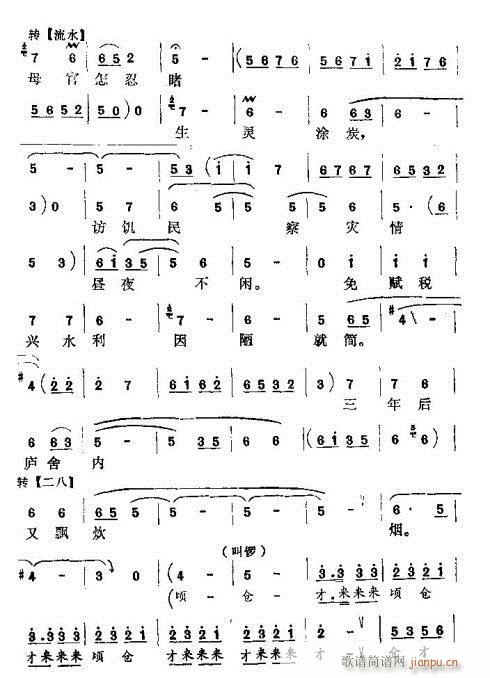 转【流水】
7 6 6 5 2 5 - (5676 5671 2176
母官怎忍睹
5652 50) 0 7 - 6 - 6 3 6 -
生灵涂炭，
5 - 5 - 53 (i i 7 6767 6532
3) 0 5 7 6 5 5 6 5· (6
访饥民察灾情
5 3) 6i35 5 6 5 - 0 i i i
昼夜不闲。免赋税
7 7 6 7 6 - 5 - 5 65 #4 -
兴水利因陋就简。
#4 (2 2 2 7 6162 6532 3) 7 7 6
三年后
6 63 5 - 5 5 6 - (6i35 6 6)
庐舍内
转【二八】
6 6 65 5 5 - 5 - 5 - 6·5
又飘炊烟。
（叫锣）
#4 - 3 0 (4 - 5 - 3·3 33 2321
（顷仓才·来来来顷仓
3·3 33 2321 3·3 33 2321 5 - 5356
才来来来顷仓才来来来才
歌谱简谱网
jianpu.cn